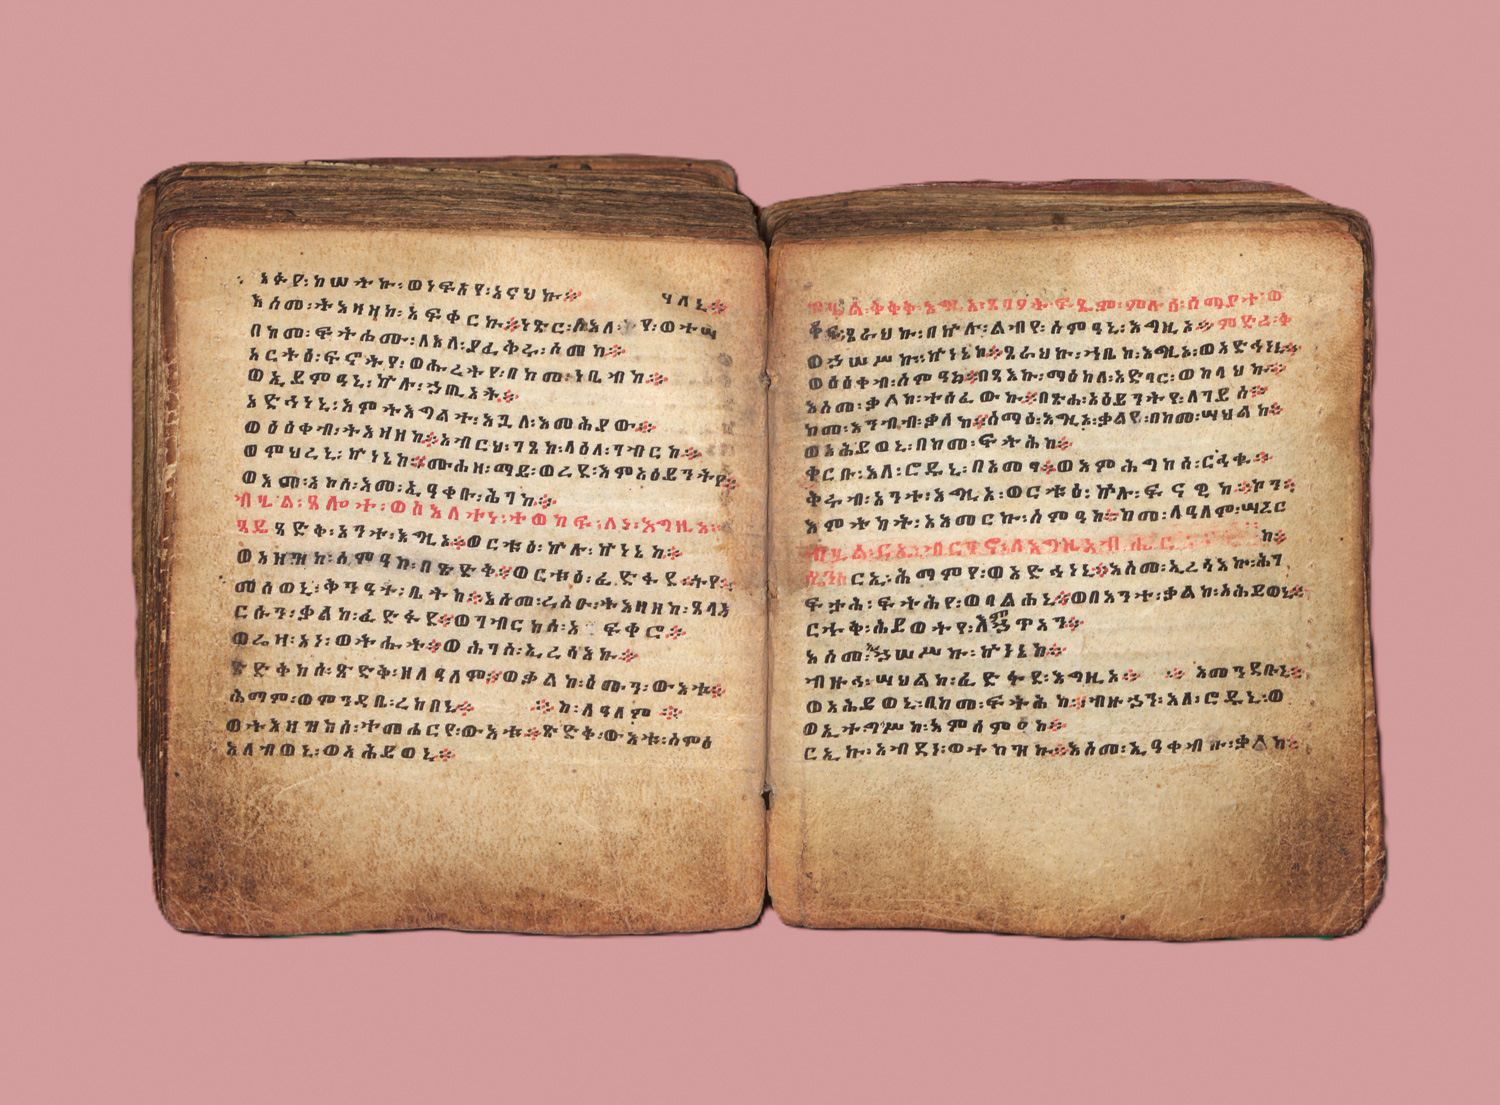 አፉየ፡ከሠትኩ፡ወነፍአየ፡አናህኩ። ሃለኒ።
እስመ፡ትእዛዘከ፡አፍቀርኩ።ነጽር፡ላእለ፡የ፡ወተሣ
በከመ፡ፍትሐሙ፡ለእለ፡ያፈቅሩ፡ስመከ።
አርትዕ፡ፍኖትየ፡ወሑረትየ፡በከመ፡ነቢብከ።
ወኢይምዓኒ፡ኵሉ፡ኃጢአት።
አድኅነኒ፡እምትእግልተ፡እጓለ፡እመሕያው።
ወዕዕቀብ፡ትእዛዘከ።አብርህ፡ገጸከ፡ላዕለ፡ገብርከ።
ወምህረኒ፡ኵነኔከ።ሙሐዘ፡ማይ፡ወረደ፡እምአዕይንትየ።
ወእመ፡አኮሰ፡እመ፡ኢዓቀቡ፡ሕገከ።
ብሂል፡ጸሎት፡ወስእለተነ፡ተወከፍ፡ለነ፡እግዚኦ።
ጻዴ ጻድቅ፡አንተ፡እግዚኦ።ወርቱዕ፡ኵሉ፡ኵነኔከ።
ወአዘዝከ፡ስምዓከ፡በጽድቅ።ወርቱዕ፡ፈድፋደ።
መሰወኒ፡ቅንዓተ፡ቤትከ።እስመ፡ረስዑ፡ትእዛዘከ፡ጸላእ
ርሱን፡ቃልከ፡ፈድፋደ።ወገብርከሰ፡አ ፍቀሮ።
ወሬዛ፡አነ፡ወትሑት።ወሕገሰ፡ኢረሳእኩ።
ጽድቀከሰ፡ጽድቅ፡ዘለዓለም።ወቃልከ፡ዕሙን፡ውእቱ።
ሕማም፡ወምንዳቤ፡ረከበኒ። ከ፡ለዓለም
ወትእዛዝከሰ፡ተመሐርየ፡ውእቱ።ጽድቅ፡ውእቱ፡ስምዕ
አለብወኒ፡ወአሕይወኒ።
ጸራህኩ፡በኵሉ፡ልብየ፡ስምዓኒ፡እግዚኦ።
ወኃሠሥኩ፡ኵነኔከ።ጸራህኩ፡ኀቤከ፡እግዚኦ፡ወአድኅነኒ።
ወዕዕቀብ፡ስምዓከ።በጻእኩ፡ማዕከለ፡አድባር፡ወከላህኩ።
እስመ፡ቃልከ፡ተሰፈውኩ።በጽሐ፡አዕይንትየ፡ለገይሰ።
ከመ፡አንብብ፡ቃለከ።ስማዕ፡እግዚኦ፡ቃልየ፡በከመ፡ሣህልከ።
ወአሕይወኒ፡በከመ፡ፍትሕከ።
ቀርቡ፡እለ፡ሮዱኒ፡በአመፃ።ወእምሕግከሰ፡ርኅቁ።
ቅሩብ፡አንተ፡እግዚኦ፡ወርቱዕ፡ኵሉ፡ፍናዊከ።
እምትካት፡አእመርኩ፡ስምዓከ።ከመ፡ለዓለም፡ሣረር
ከ።
ርኢ፡ሕማምየ፡ወአድኅነኒ።እስመ፡ኢረሳእኩ፡ሕገ
ፍታሕ፡ፍትሕየ፡ወባልሐኒ።ወበእንተ፡ቃልከ፡አሕይወኒ።
ርኁቅ፡ሕይወትየ፡እምኃጥአን።
እስመ፡ኢኃሠሥኩ፡ኵነኔከ።
ብዙኅ፡ሣህልከ፡ፈድፋደ፡እግዚኦ። እመንዳቤኒ።
ወአሕይወኒ፡በከመ፡ፍትሕከ።ብዙኃን፡እለ፡ሮዱኒ፡ወ
ወኢተግሥከ፡እምስምዕከ።
ርኢኩ፡አብደነ፡ወተከዝኩ።እስመ፡ኢዓቀብኩ፡ቃልከ።